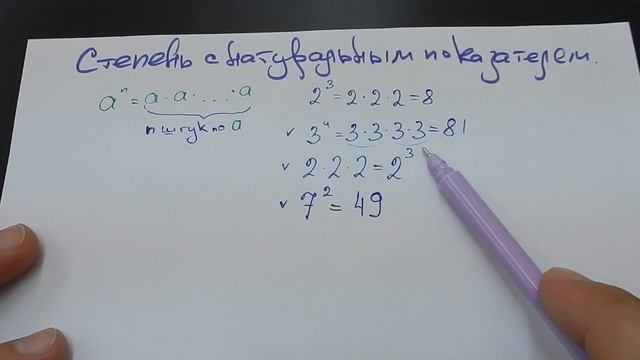 Степень с натуральным показателем.
aⁿ = a · a · ... · a
n штук по a
2³ = 2 · 2 · 2 = 8
✓ 3⁴ = 3 · 3 · 3 · 3 = 81
✓ 2 · 2 · 2 = 2³
✓ 7² = 49